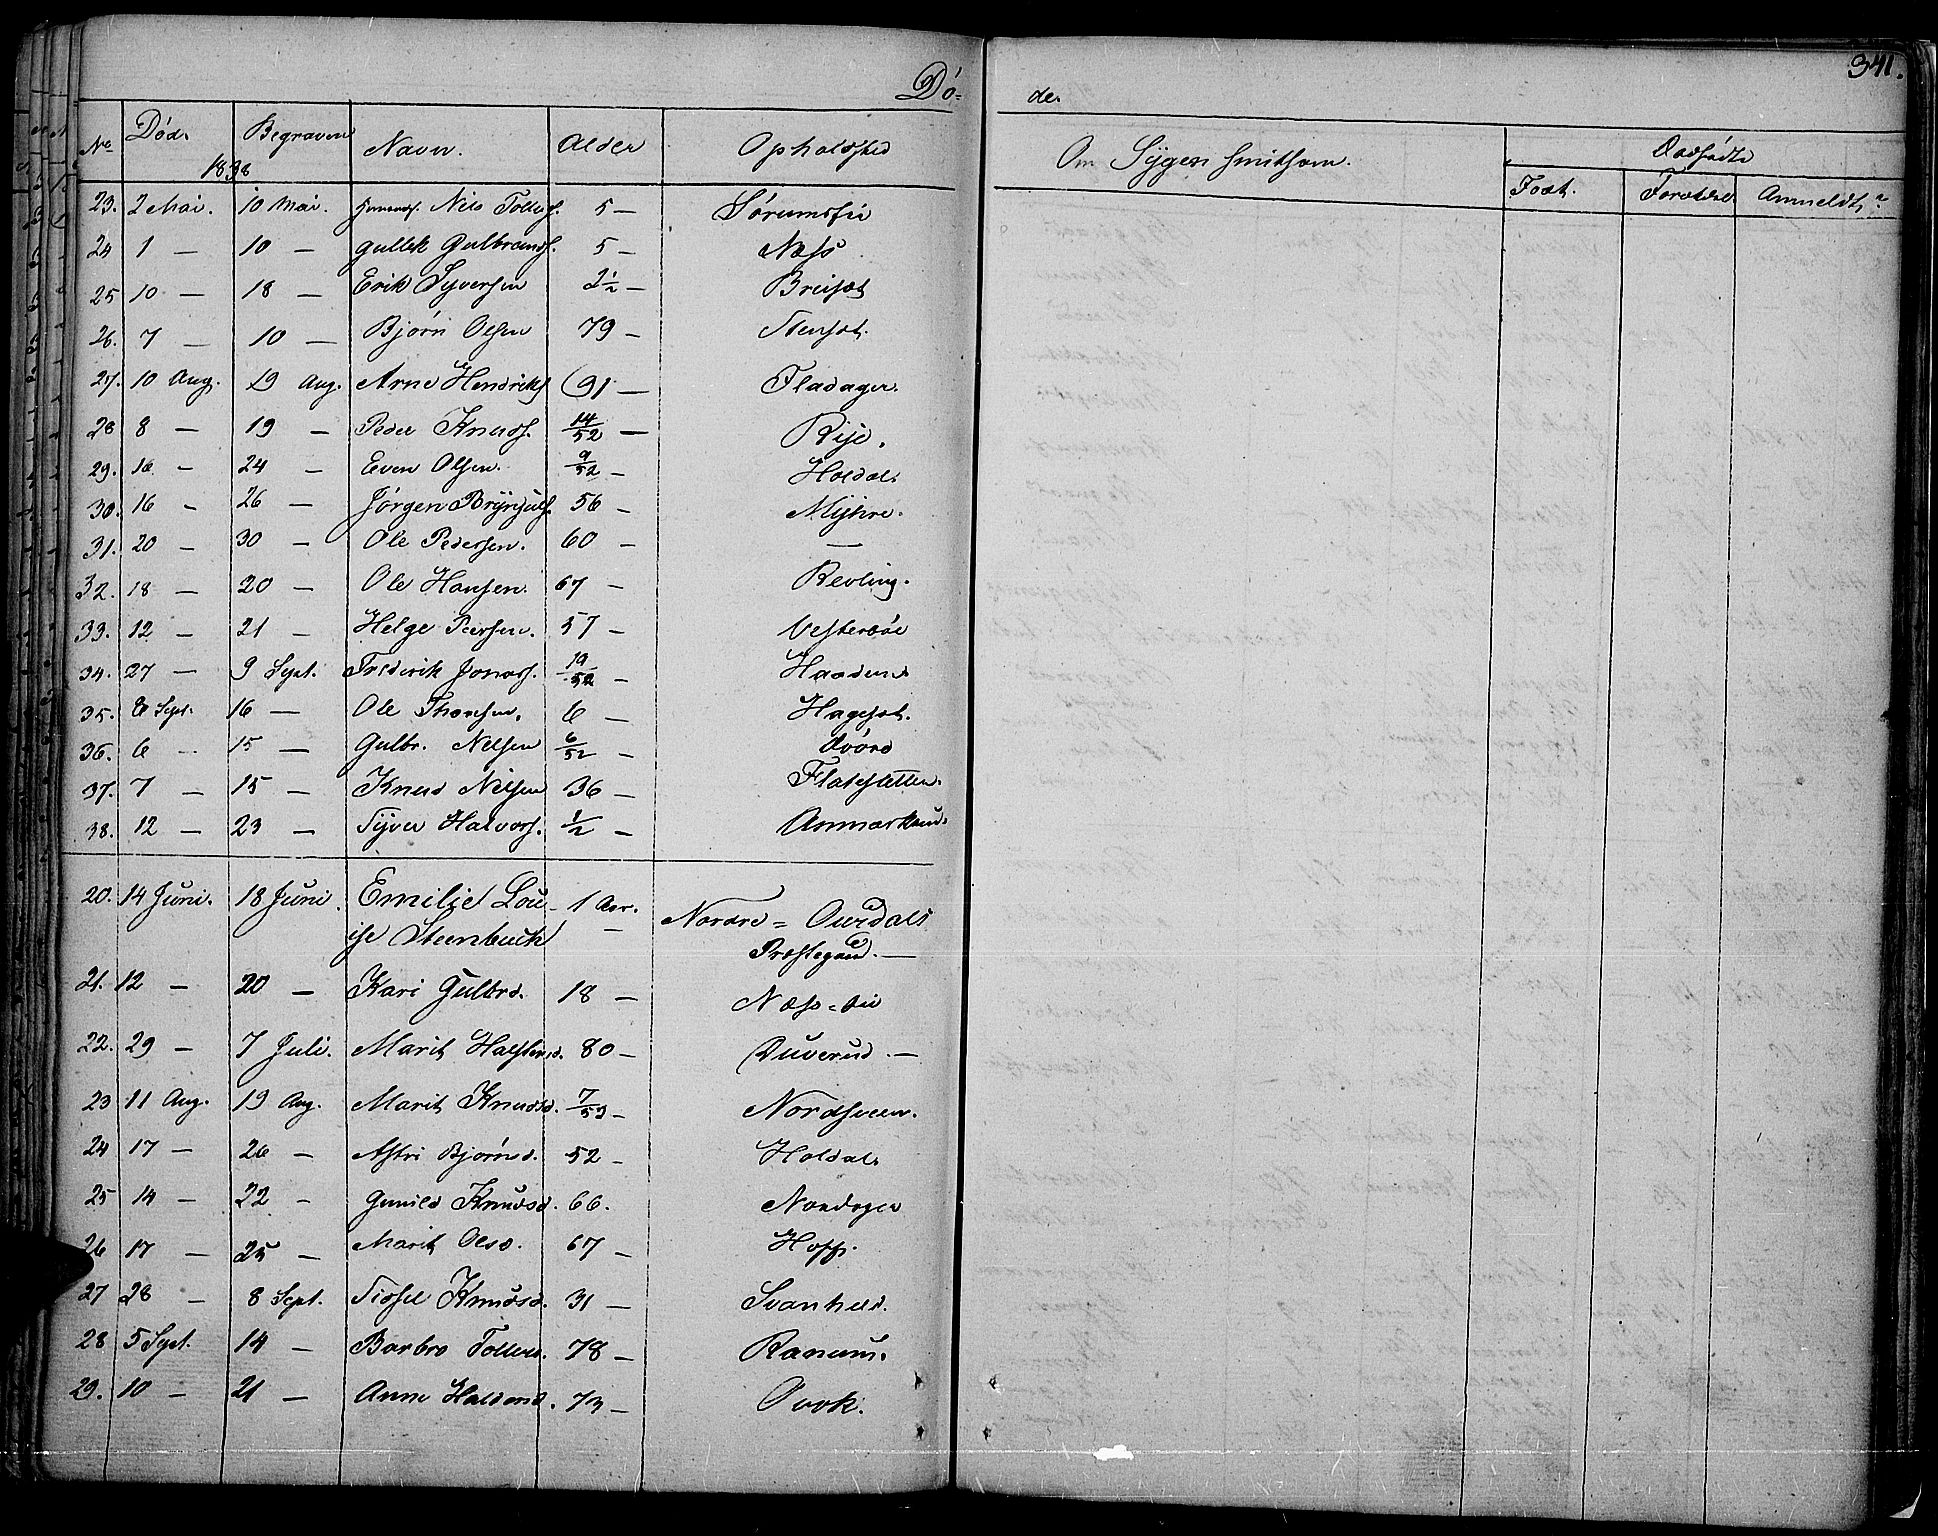 341.
Dö=
de.
No Død. Begraven Navn. Alder Opholdsted Om Sygen smitsom. Dødfødte
1838 Fodt. Forældre Anmeldt
23. 2 Mai. 10 Mai. Nils Tollefs. 5 —
24 1 — 10 — Gullik Gulbrands. 5 — Næss
25 10 — 18 — Erik Syversen 2½ — Breiset
26. 7 — 10 — Bjørn Olsen 79 — Stenset.
27. 10 Aug. 19 Aug. Arne Hendriks. 91 — Fladager.
28 8 — 19 — Peder Knuds. 14/52 — Rije.
29. 10 — 24 — Even Olsen. 9/52 — Holdal.
30. 16 — 26 — Jørgen Brynjuls. 56 — Myhre.
31. 20 — 30 — Ole Pedersen. 60 — —
32. 18 — 20 — Ole Hansen. 67 — Revling.
33. 12 — 21 — Helge Peersen. 57 — Vesterbøe
34. 27 — 9 Sept. Frederik Jonass. 19/52 —
35. 8 Sept. 16 — Ole Thoresen. 6 — Hageset.
36. 6 — 15 — Gulbr. Nelsen 6/52 —
37. 7 — 15 — Knud Nilsen 36 —
38. 12 — 23 — Syver Halvors. ½ —
20. 14 Juni. 18 Juni. Emilie Lou- 1 Aar. Nordre = Ourdals
ise Steenbuch — Præstegaard. —
21. 12 — 20 — Kari Gulbrd. 18 — Næss = eie
22. 29 — 7 Juli. Marit Halstensd. 80 — Ruverud. —
23 11 Aug. 19 Aug. Marit Knudsd. 7/52 — Nordsveen.
24 17 — 26 — Astri Bjørnsd. 52 — Holdal.
25 14 — 22 — Gunild Knudsd. 66.
26 17 — 25 — Marit Olsd. 67 — Hoff.
27 28 — 8 Sept. Sidsel Knudsd. 31 — Svanheld.
28 5 Sept. 14 — Barbro Tollefs. 78 — Ranum.
29. 10 — 21 — Anne Haldords. 73 —